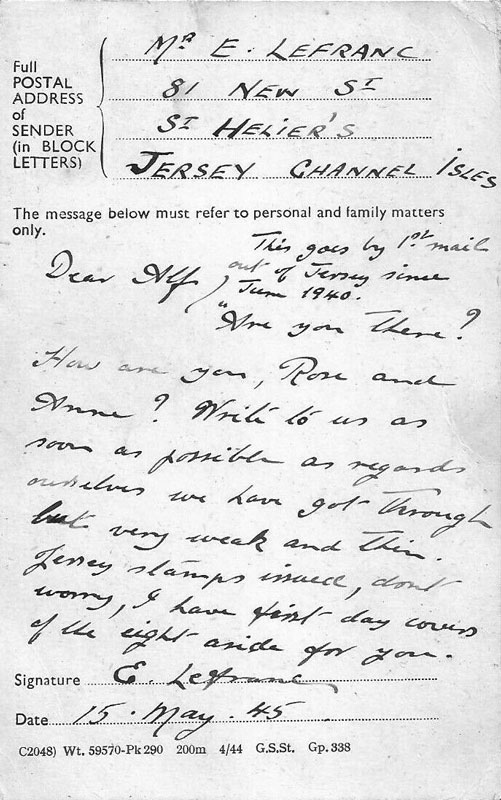 Full
POSTAL
ADDRESS
of
SENDER
(in BLOCK
LETTERS)
Mr E. LEFRANC
81 NEW ST
ST HELIER'S
JERSEY CHANNEL ISLES
The message below must refer to personal and family matters
only.
This goes by 1st mail
out of Jersey since
June 1940.
Dear Alf,
"Are you there?
How are you, Rose and
Anne? Write to us as
soon as possible as regards
ourselves we have got through
but very weak and thin.
Jersey stamps issued, dont
worry, I have first day covers
of the eight aside for you.
Signature E. Lefranc
Date 15. May. 45
C2048) Wt. 59570-Pk290 200m 4/44 G.S.St. Gp.338